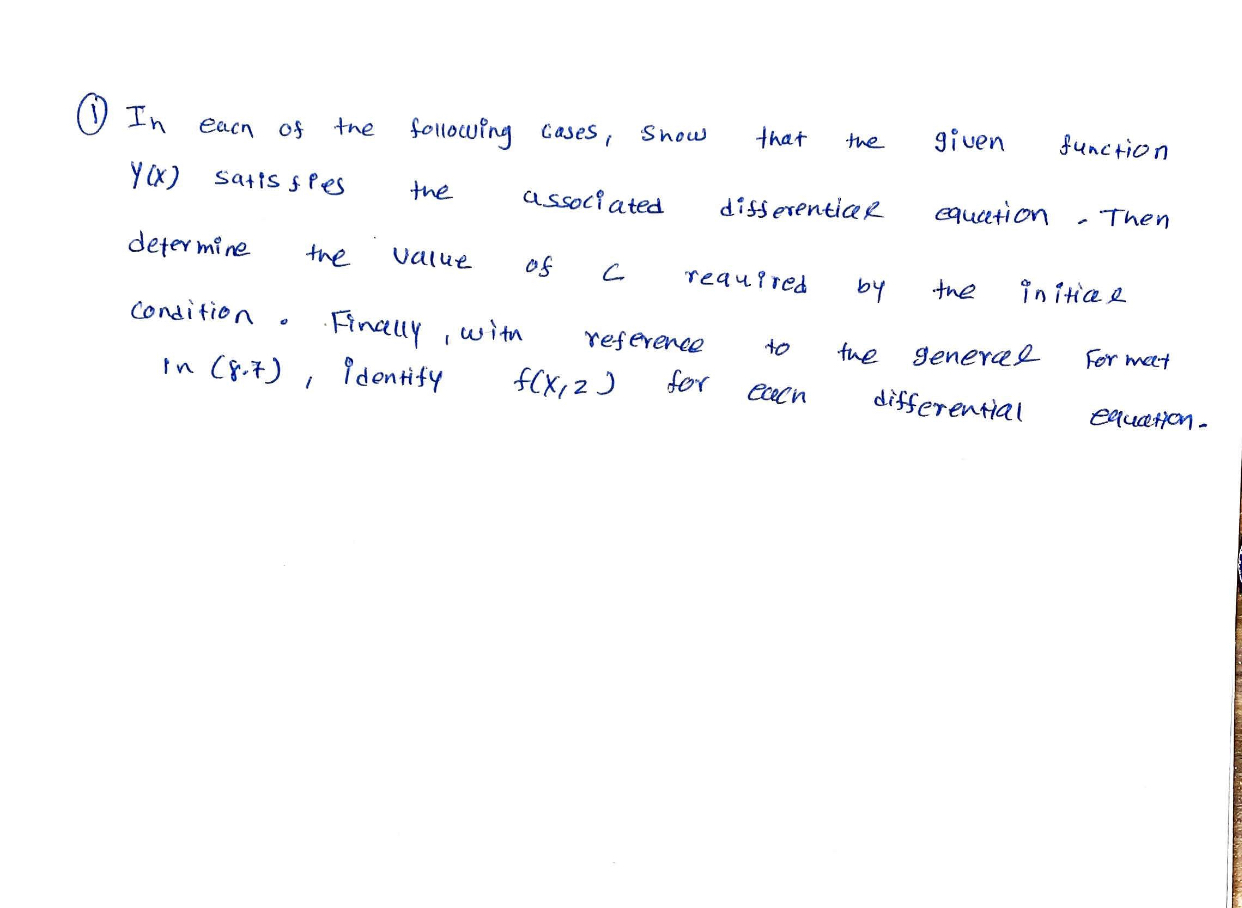 ① In each of the following cases, show that the given function
Y(x) satisfies the associated differential equation. Then
determine the value of c required by the initial
condition. Finally, with reference to the general Format
in (8.7), identify f(x,z) for each differential equation.